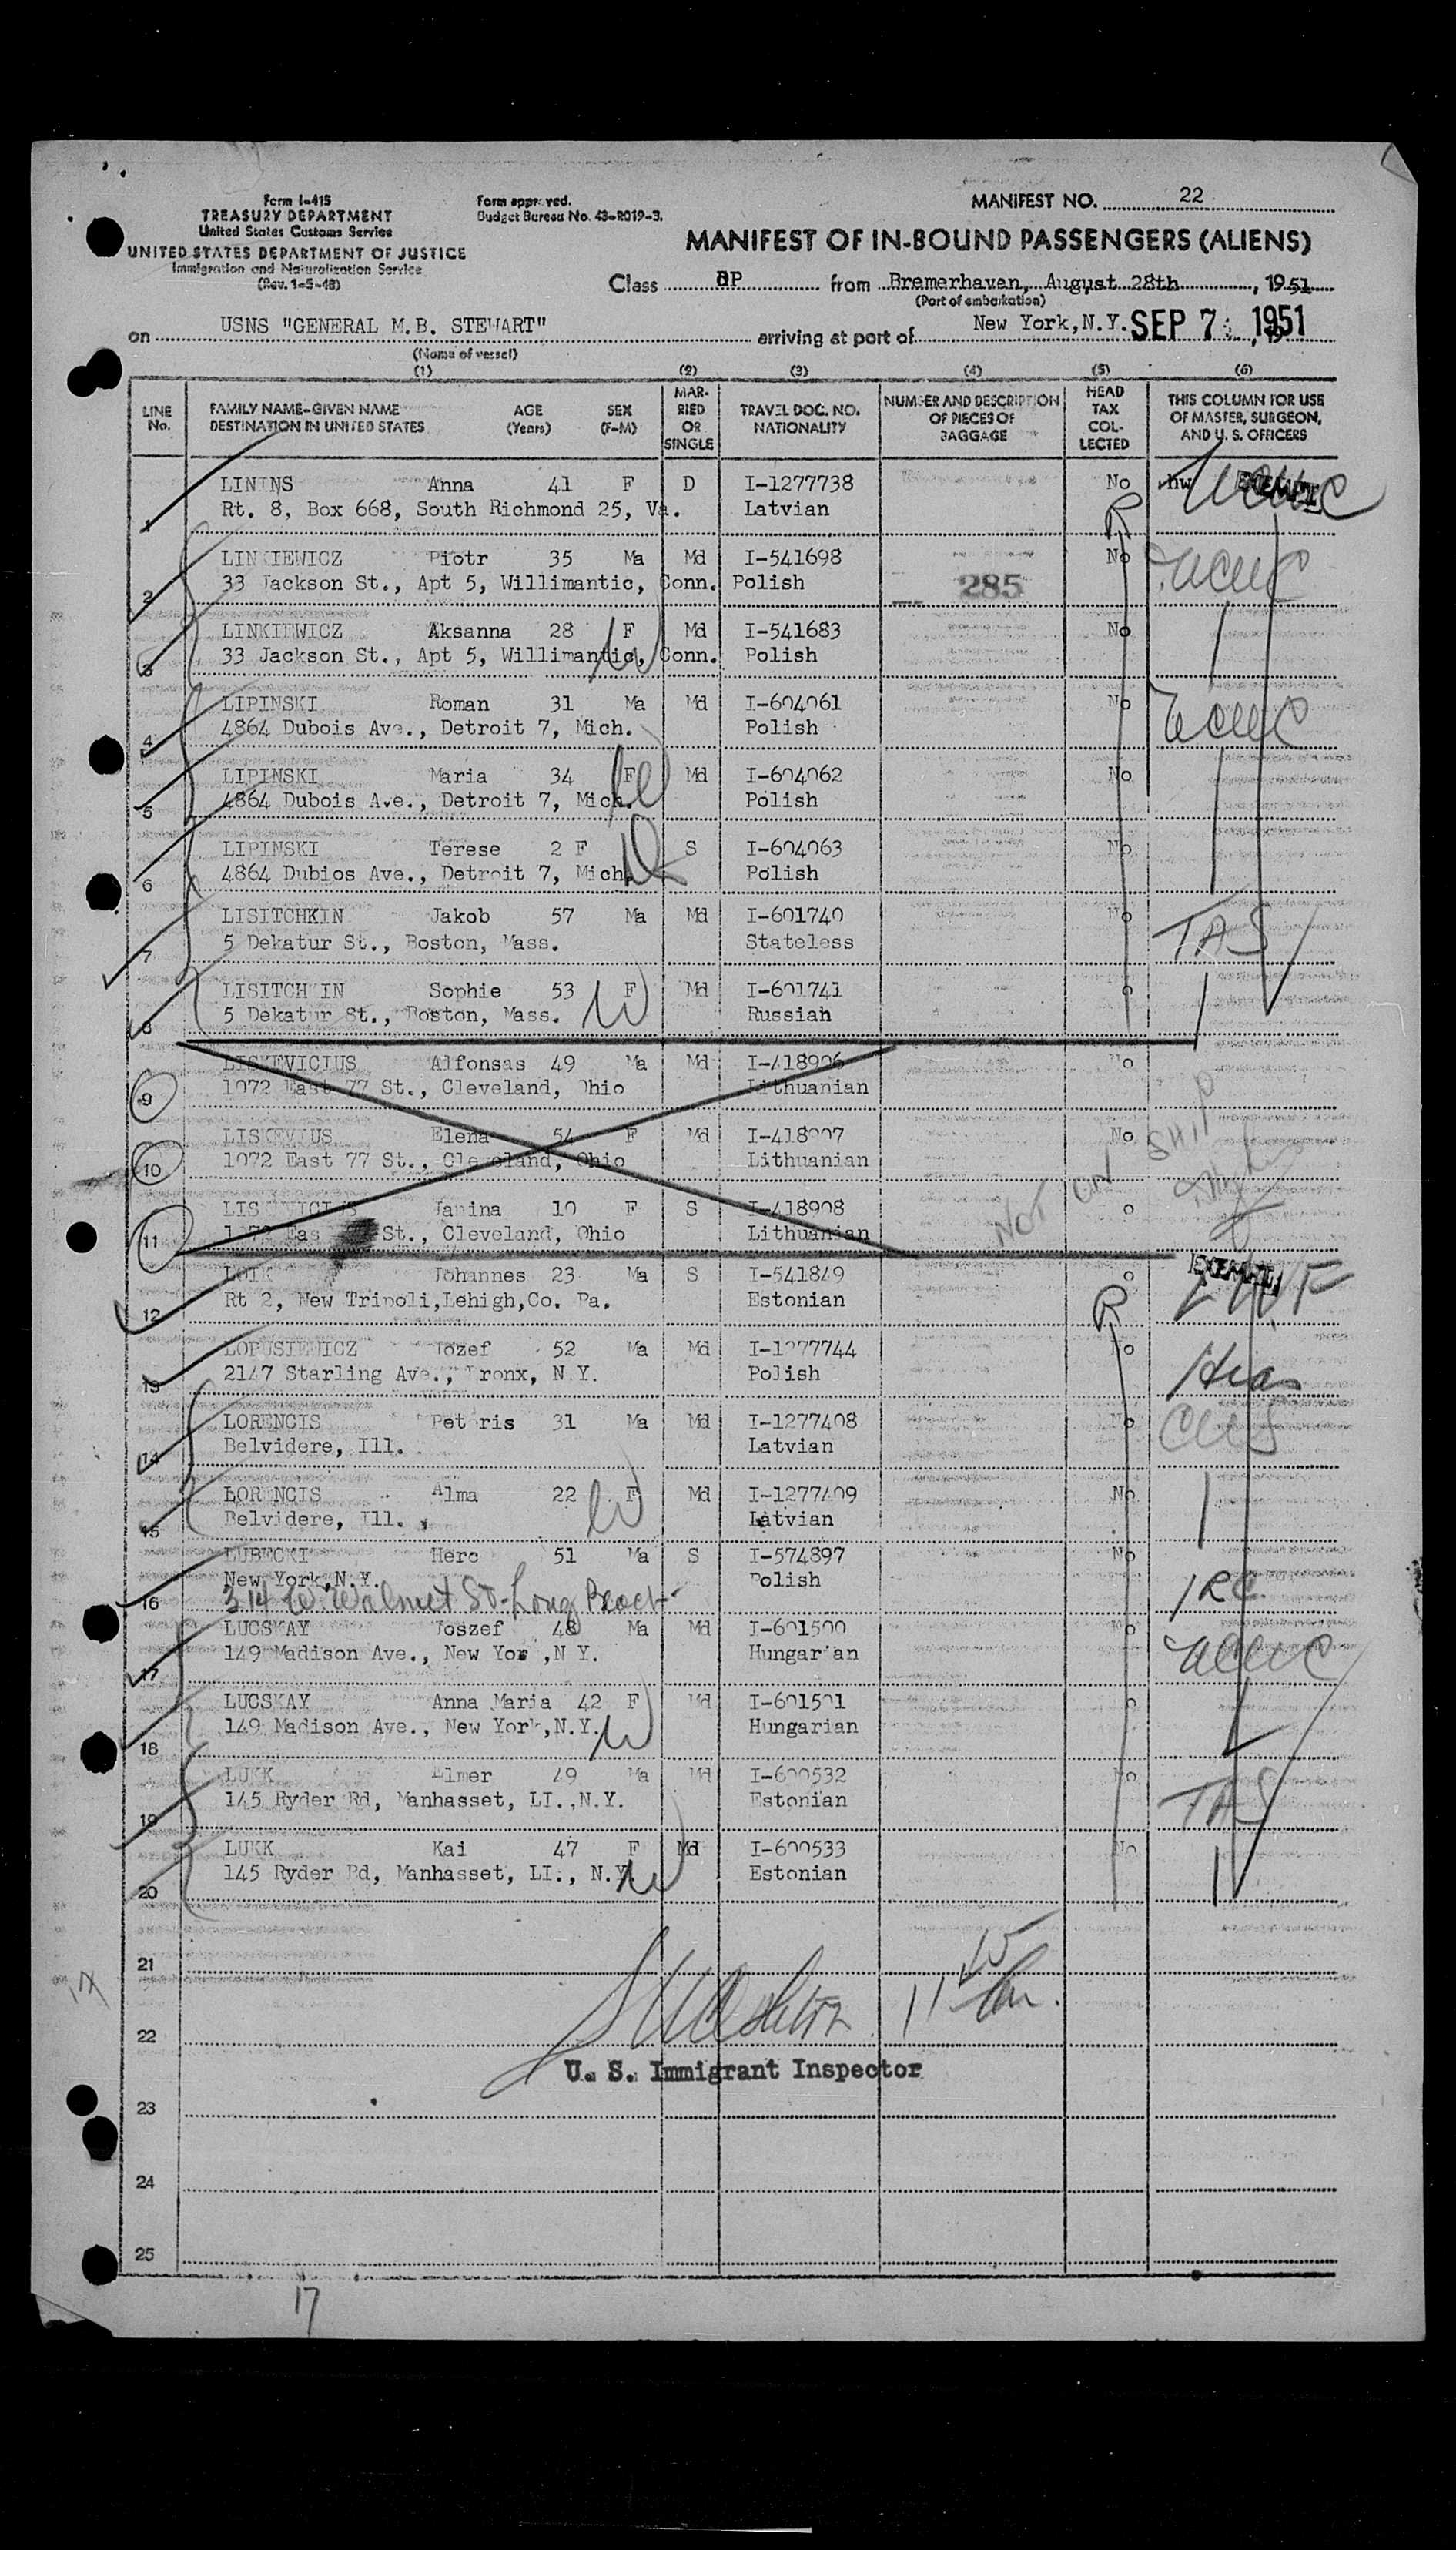 Form I-415
TREASURY DEPARTMENT
United States Customs Service
UNITED STATES DEPARTMENT OF JUSTICE
Immigration and Naturalization Service
(Rev. 1-5-48)
Form approved.
Budget Bureau No. 43-R019-3.
MANIFEST NO. 22
MANIFEST OF IN-BOUND PASSENGERS (ALIENS)
Class DP from Bremerhaven, August 28th, 1951
(Port of embarkation)
on USNS "GENERAL M.B. STEWART" arriving at port of New York, N.Y. SEP 7 1951
(Name of vessel)
(1) (2) (3) (4) (5) (6)
LINE No. FAMILY NAME-GIVEN NAME DESTINATION IN UNITED STATES AGE (Years) SEX (F-M) MARRIED OR SINGLE TRAVEL DOC. NO. NATIONALITY NUMBER AND DESCRIPTION OF PIECES OF BAGGAGE HEAD TAX COLLECTED THIS COLUMN FOR USE OF MASTER, SURGEON, AND U. S. OFFICERS
1 LININS Anna 41 F D I-1277738 No hw EXEMPT
Rt. 8, Box 668, South Richmond 25, Va. Latvian
2 LINKIEWICZ Piotr 35 Ma Md I-541698 No
33 Jackson St., Apt 5, Willimantic, Conn. Polish 285
3 LINKIEWICZ Aksanna 28 F Md I-541683 No
33 Jackson St., Apt 5, Willimantic, Conn. Polish
4 LIPINSKI Roman 31 Ma Md I-604061 No
4864 Dubois Ave., Detroit 7, Mich. Polish
5 LIPINSKI Maria 34 F Md I-604062 No
4864 Dubois Ave., Detroit 7, Mich. Polish
6 LIPINSKI Terese 2 F S I-604063 No
4864 Dubios Ave., Detroit 7, Mich. Polish
7 LISITCHKIN Jakob 57 Ma Md I-601740 No TAS
5 Dekatur St., Boston, Mass. Stateless
8 LISITCHKIN Sophie 53 F Md I-601741
5 Dekatur St., Boston, Mass. Russian
9 LISKEVICIUS Alfonsas 49 Ma Md I-418906 No
1072 East 77 St., Cleveland, Ohio Lithuanian
10 LISKEVIUS Elena 54 F Md I-418907 No
1072 East 77 St., Cleveland, Ohio Lithuanian
NOT ON SHIP
11 Janina 10 F S I-418908
St., Cleveland, Ohio Lithuanian
12 LOIK Johannes 23 Ma S I-541849 EXEMPT
Rt 2, New Tripoli, Lehigh, Co. Pa. Estonian
13 LOPUSIEWICZ Jozef 52 Ma Md I-1277744 No Hias
2147 Starling Ave., Bronx, N.Y. Polish
14 LORENCIS Peteris 31 Ma Md I-1277408 No
Belvidere, Ill. Latvian
15 LORENCIS Alma 22 F Md I-1277409 No
Belvidere, Ill. Latvian
16 LUBECKI Hero 51 Ma S I-574897 No IRC
New York, N.Y. Polish
314 W. Walnut St. Long Beach
17 LUCSKAY Joszef 48 Ma Md I-601500 No
149 Madison Ave., New York, N Y. Hungarian
18 LUCSKAY Anna Maria 42 F Md I-601501
149 Madison Ave., New York, N.Y. Hungarian
19 LUKK Elmer 49 Ma Md I-600532 No TAS
145 Ryder Rd, Manhasset, LI., N.Y. Estonian
20 LUKK Kai 47 F Md I-600533 No
145 Ryder Rd, Manhasset, LI., N.Y. Estonian
21
22
U. S. Immigrant Inspector
23
24
25
17